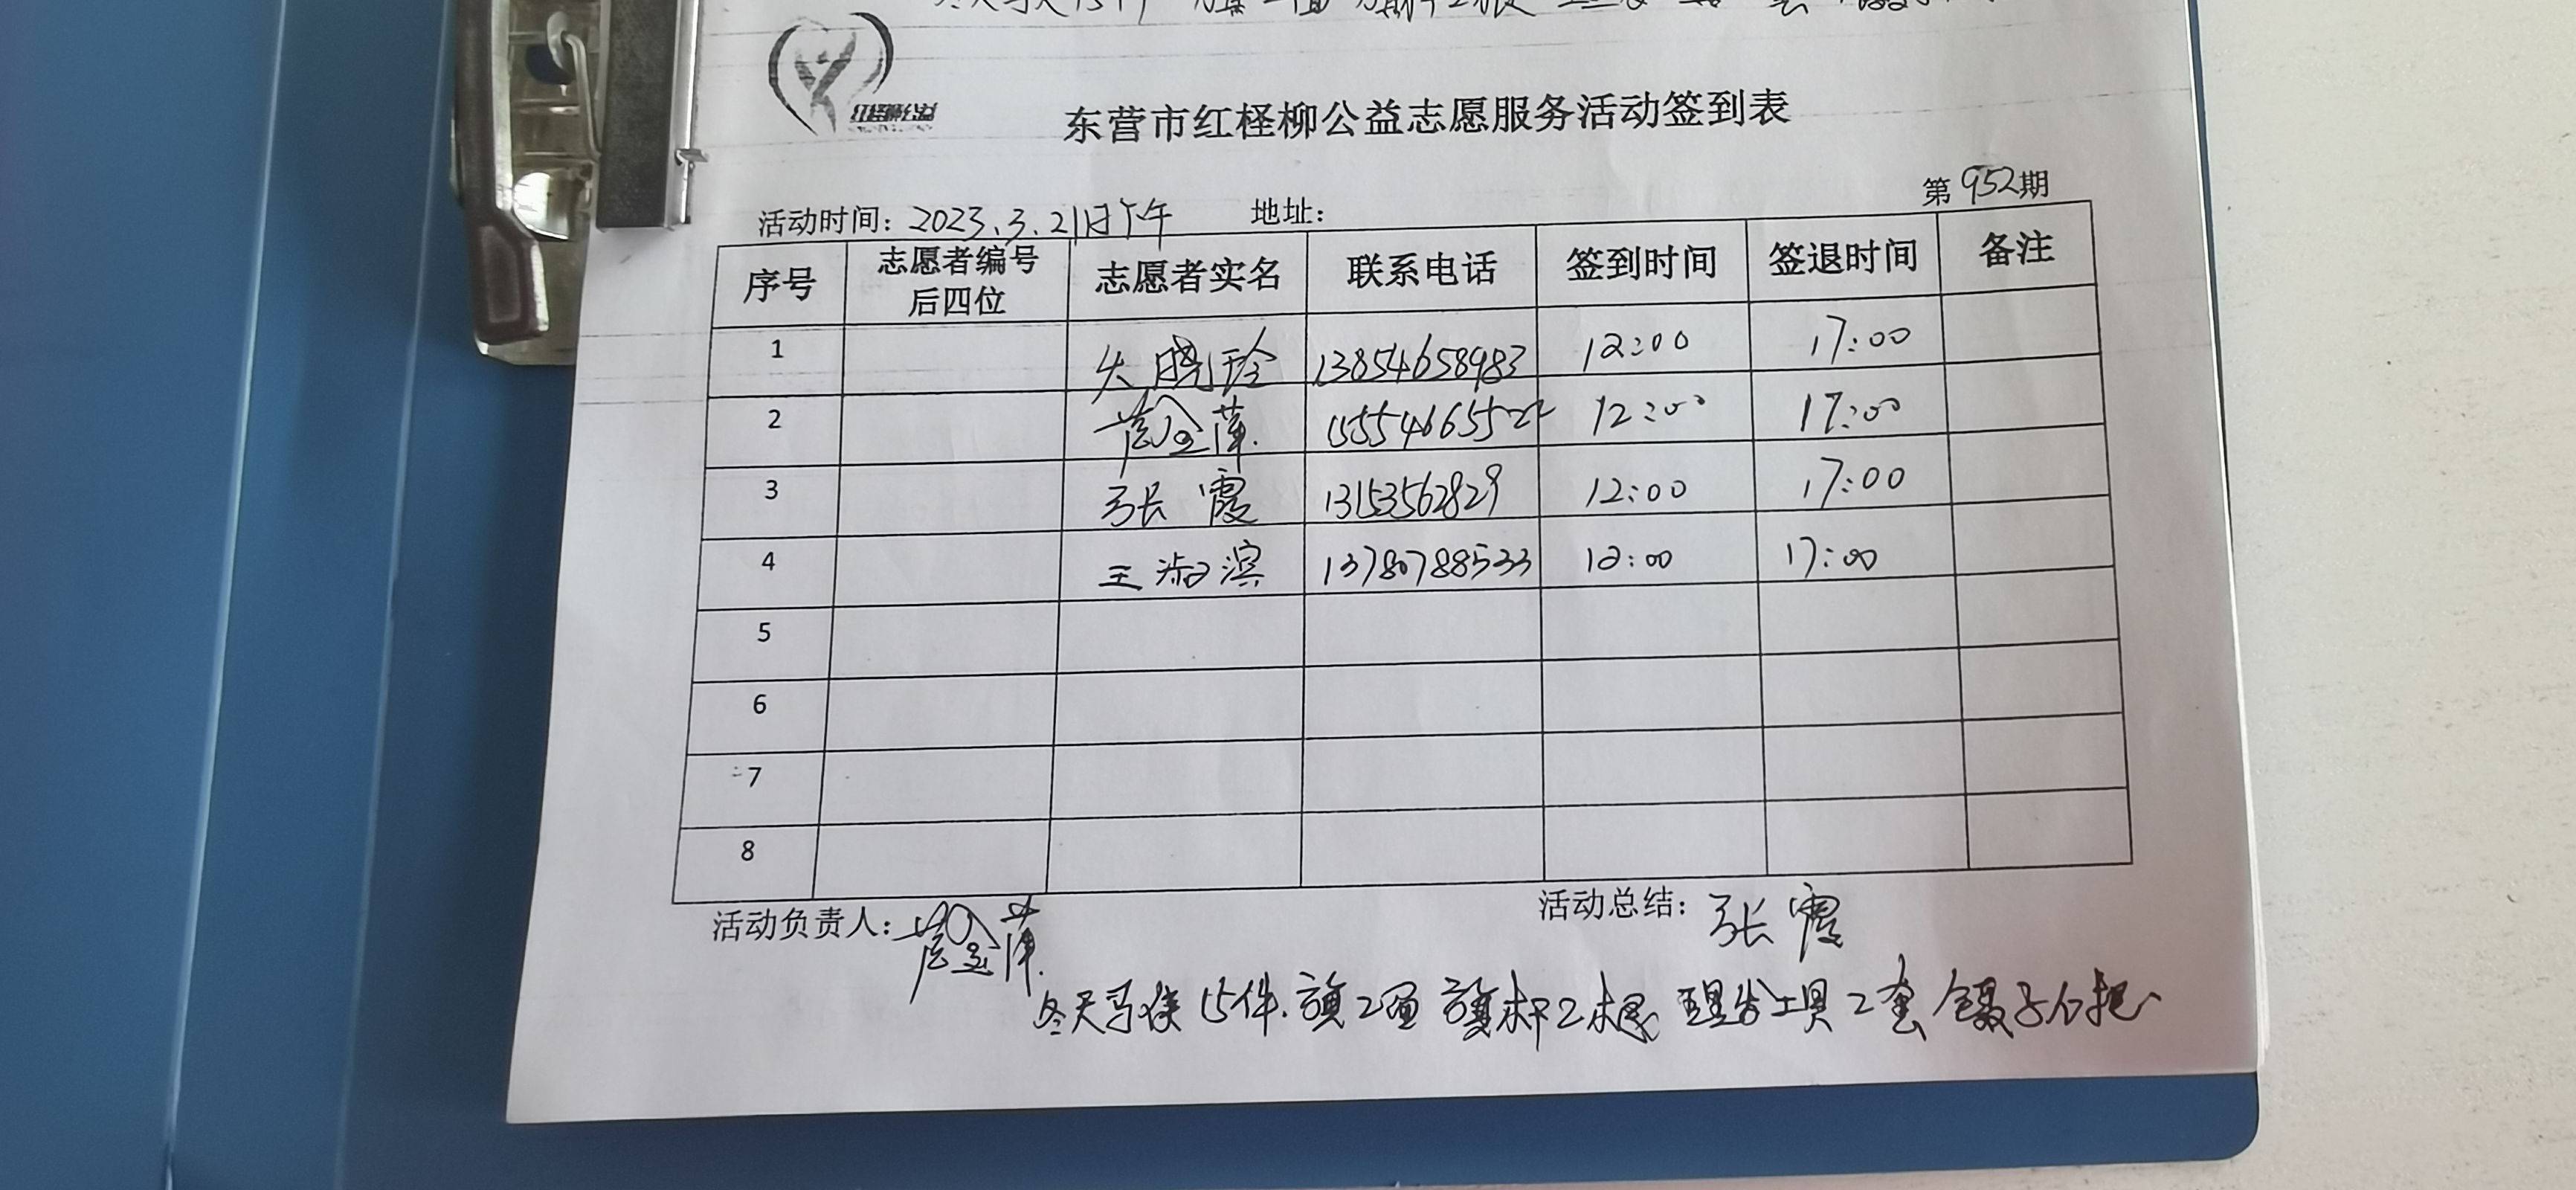 红柽柳公益
东营市红柽柳公益志愿服务活动签到表
第952期
活动时间：2023.3.21日下午 地址：
序号 志愿者编号后四位 志愿者实名 联系电话 签到时间 签退时间 备注
1 晓玲 13854658983 12:00 17:00
2 金萍 12:00 17:00
3 张霞 13153562829 12:00 17:00
4 王淑滨 13780788533 12:00 17:00
5
6
7
8
活动负责人：金萍 活动总结：张霞
冬天马夹15件.旗2面 旗杆2根 理发工具2套 镊子6把